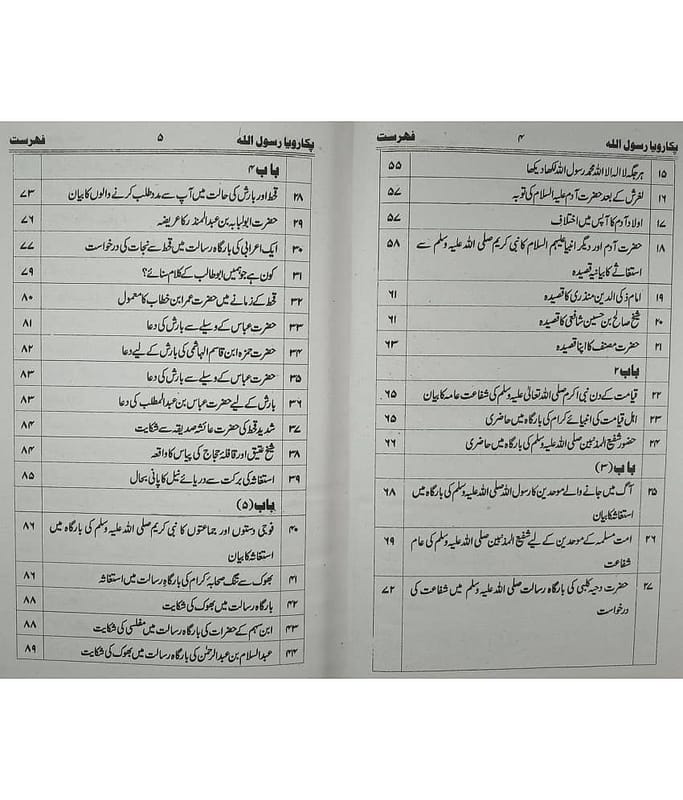 پکارو یا رسول اللہ ۴ فہرست
۱۵ ہر جگہ لا الہ الا اللہ محمد رسول اللہ لکھا دیکھا ۵۵
۱۶ لغزش کے بعد حضرت آدم علیہ السلام کی توبہ ۵۷
۱۷ اولاد آدم کا آپس میں اختلاف ۵۷
۱۸ حضرت آدم اور دیگر انبیا علیہم السلام کا نبی کریم صلی اللہ علیہ وسلم سے ۵۸
استغاثے کا بیانیہ قصیدہ
۱۹ امام ذکی الدین منذری کا قصیدہ ۶۱
۲۰ شیخ صالح بن حسین شافعی کا قصیدہ ۶۱
۲۱ حضرت مصنف کا اپنا قصیدہ ۶۳
باب ۲
۲۲ قیامت کے دن نبی اکرم صلی اللہ تعالیٰ علیہ وسلم کی شفاعت عامہ کا بیان ۶۵
۲۳ اہل قیامت کی انبیائے کرام کی بارگاہ میں حاضری ۶۵
۲۴ حضور شفیع المذنبین صلی اللہ علیہ وسلم کی بارگاہ میں حاضری ۶۶
باب (۳)
۲۵ آگ میں جانے والے موحدین کا رسول اللہ صلی اللہ علیہ وسلم کی بارگاہ میں ۶۸
استغاثہ کا بیان
۲۶ امت مسلمہ کے موحدین کے لیے شفیع المذنبین صلی اللہ علیہ وسلم کی عام ۶۹
شفاعت
۲۷ حضرت دحیہ کلبی کی بارگاہ رسالت صلی اللہ علیہ وسلم میں شفاعت کی ۷۲
درخواست
پکارو یا رسول اللہ ۵ فہرست
باب ۴
۲۸ قحط اور بارش کی حالت میں آپ سے مدد طلب کرنے والوں کا بیان ۷۳
۲۹ حضرت ابولبابہ بن عبد المنذر کا عریضہ ۷۶
۳۰ ایک اعرابی کی بارگاہ رسالت میں قحط سے نجات کی درخواست ۷۷
۳۱ کون ہے جو ہمیں ابوطالب کے کلام سنائے؟ ۷۹
۳۲ قحط کے زمانے میں حضرت عمر ابن خطاب کا معمول ۸۰
۳۳ حضرت عباس کے وسیلے سے بارش کی دعا ۸۱
۳۴ حضرت حمزہ ابن قاسم الہاشمی کی بارش کے لیے دعا ۸۲
۳۵ حضرت عباس کے وسیلے سے بارش کی دعا ۸۳
۳۶ بارش کے لیے حضرت عباس بن عبد المطلب کی دعا ۸۳
۳۷ شدید قحط کی حضرت عائشہ صدیقہ سے شکایت ۸۴
۳۸ شیخ عقیق اور قافلۂ حجاج کی پیاس کا واقعہ ۸۴
۳۹ استغاثہ کی برکت سے دریائے نیل کا پانی بحال ۸۵
باب (۵)
۴۰ فوجی دستوں اور جماعتوں کا نبی کریم صلی اللہ علیہ وسلم کی بارگاہ میں ۸۶
استغاثہ کا بیان
۴۱ بھوک سے تنگ صحابۂ کرام کی بارگاہ رسالت میں استغاثہ ۸۶
۴۲ بارگاہ رسالت میں بھوک کی شکایت ۸۸
۴۳ ابن سہم کے حضرات کی بارگاہ رسالت میں مفلسی کی شکایت ۸۸
۴۴ عبد السلام بن عبد الرحمٰن کی بارگاہ رسالت میں بھوک کی شکایت ۸۹